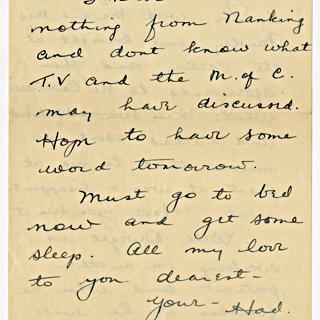 nothing from Nanking
and dont know what
T.V and the M. of C.
may have discussed.
Hope to have some
word tomorrow.
Must go to bed
now and get some
sleep. All my love
to you dearest-
your - Had.